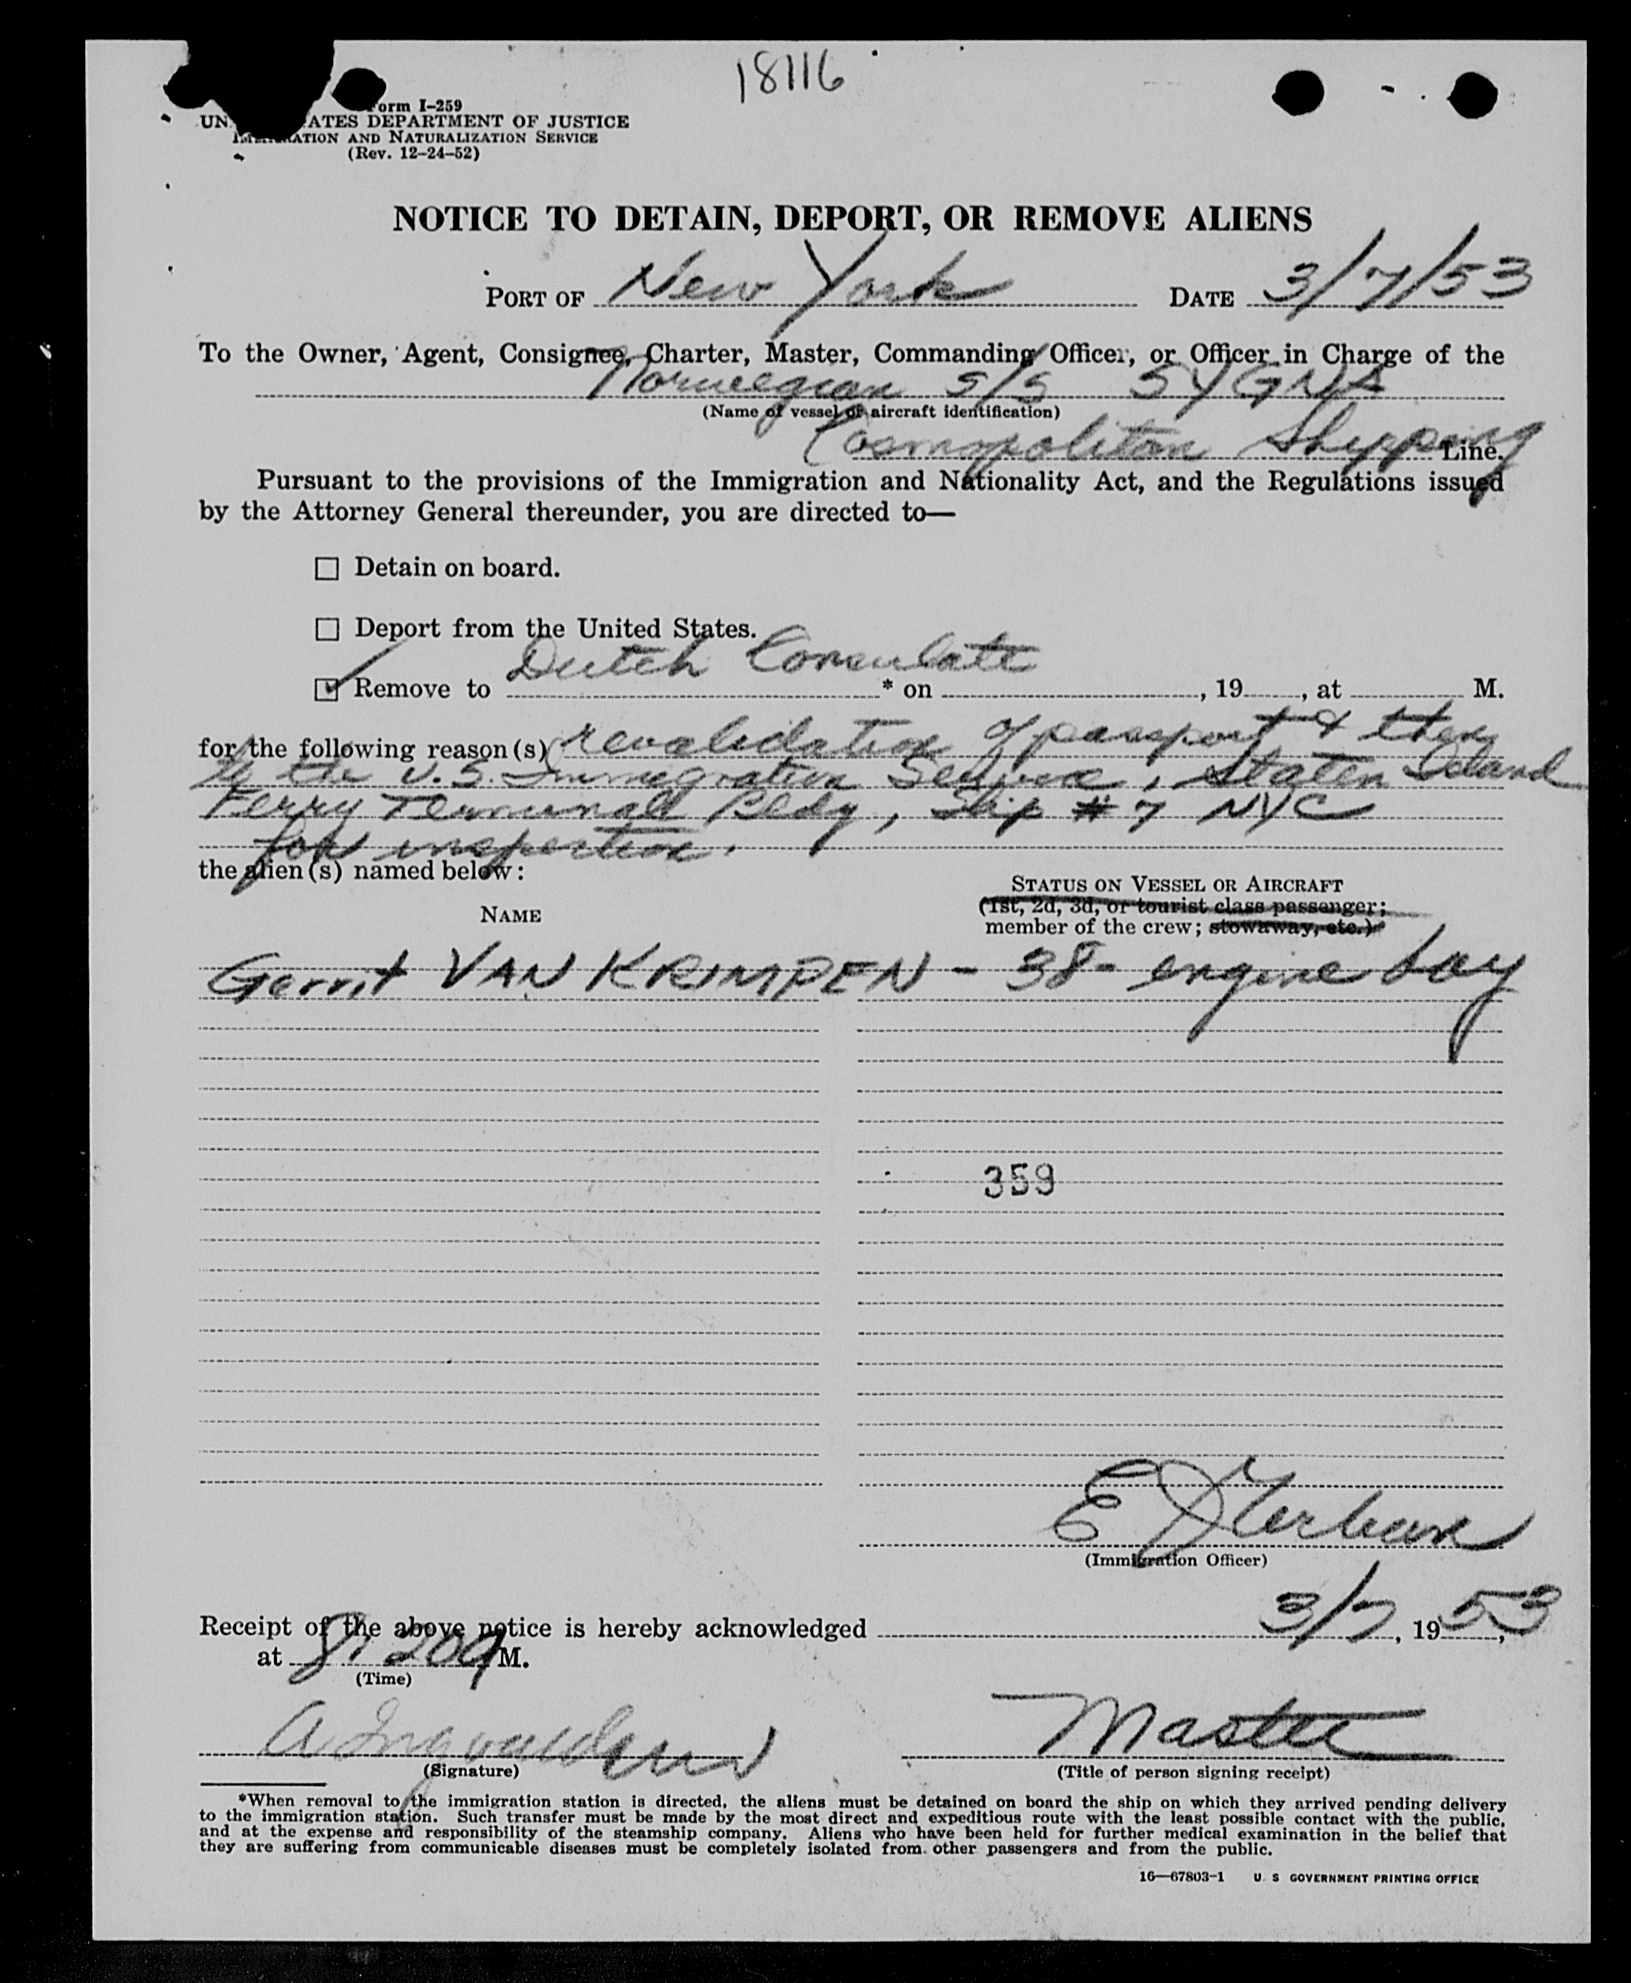 18116
Form I-259
UN ATES DEPARTMENT OF JUSTICE
ATION AND NATURALIZATION SERVICE
(Rev. 12-24-52)
NOTICE TO DETAIN, DEPORT, OR REMOVE ALIENS
PORT OF New York DATE 3/7/53
To the Owner, Agent, Consignee, Charter, Master, Commanding Officer, or Officer in Charge of the
Norwegian S/S SYGNA
(Name of vessel or aircraft identification)
Cosmopolitan Shipping Line.
Pursuant to the provisions of the Immigration and Nationality Act, and the Regulations issued
by the Attorney General thereunder, you are directed to—
☐ Detain on board.
☐ Deport from the United States.
☑ Remove to Dutch Consulate * on , 19 , at M.
for the following reason(s) revalidation of passport & then
to the U.S. Immigration Service, Staten Island
Ferry Terminal Bldg, Slip #7 NYC
for inspection.
the alien(s) named below:
NAME
STATUS ON VESSEL OR AIRCRAFT
(1st, 2d, 3d, or tourist class passenger;
member of the crew; stowaway, etc.)
Gerrit VAN KRIMPEN - 38 - engine boy
359
E
(Immigration Officer)
Receipt of the above notice is hereby acknowledged 3/7, 1953,
at 8:20a M.
(Time)
A Ingvaldsen Master
(Signature) (Title of person signing receipt)
*When removal to the immigration station is directed, the aliens must be detained on board the ship on which they arrived pending delivery
to the immigration station. Such transfer must be made by the most direct and expeditious route with the least possible contact with the public,
and at the expense and responsibility of the steamship company. Aliens who have been held for further medical examination in the belief that
they are suffering from communicable diseases must be completely isolated from other passengers and from the public.
16—67803-1 U S GOVERNMENT PRINTING OFFICE